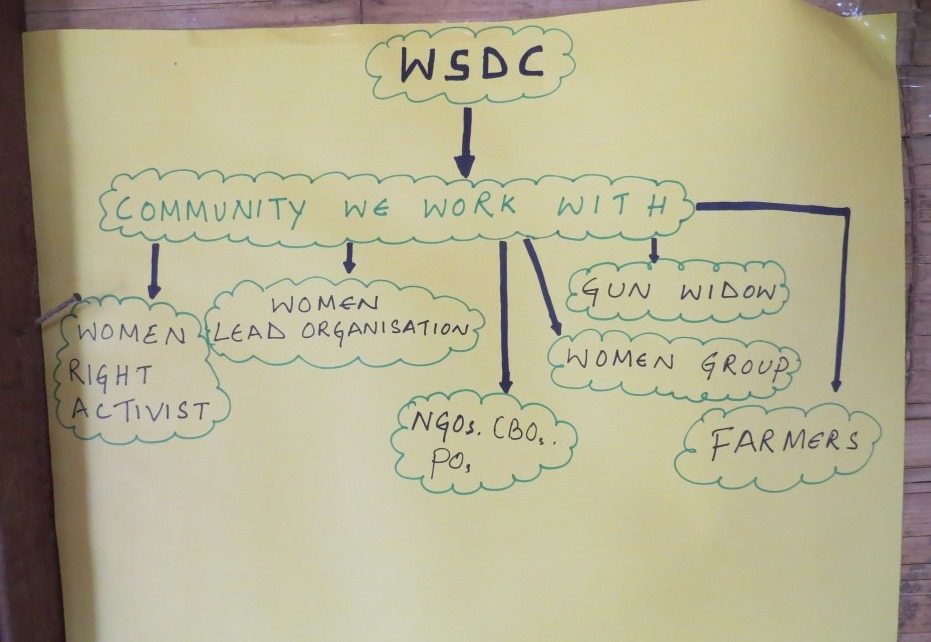 WSDC
COMMUNITY WE WORK WITH
WOMEN
RIGHT
ACTIVIST
WOMEN
LEAD ORGANISATION
NGOs. CBOs.
POs
GUN WIDOW
WOMEN GROUP
FARMERS